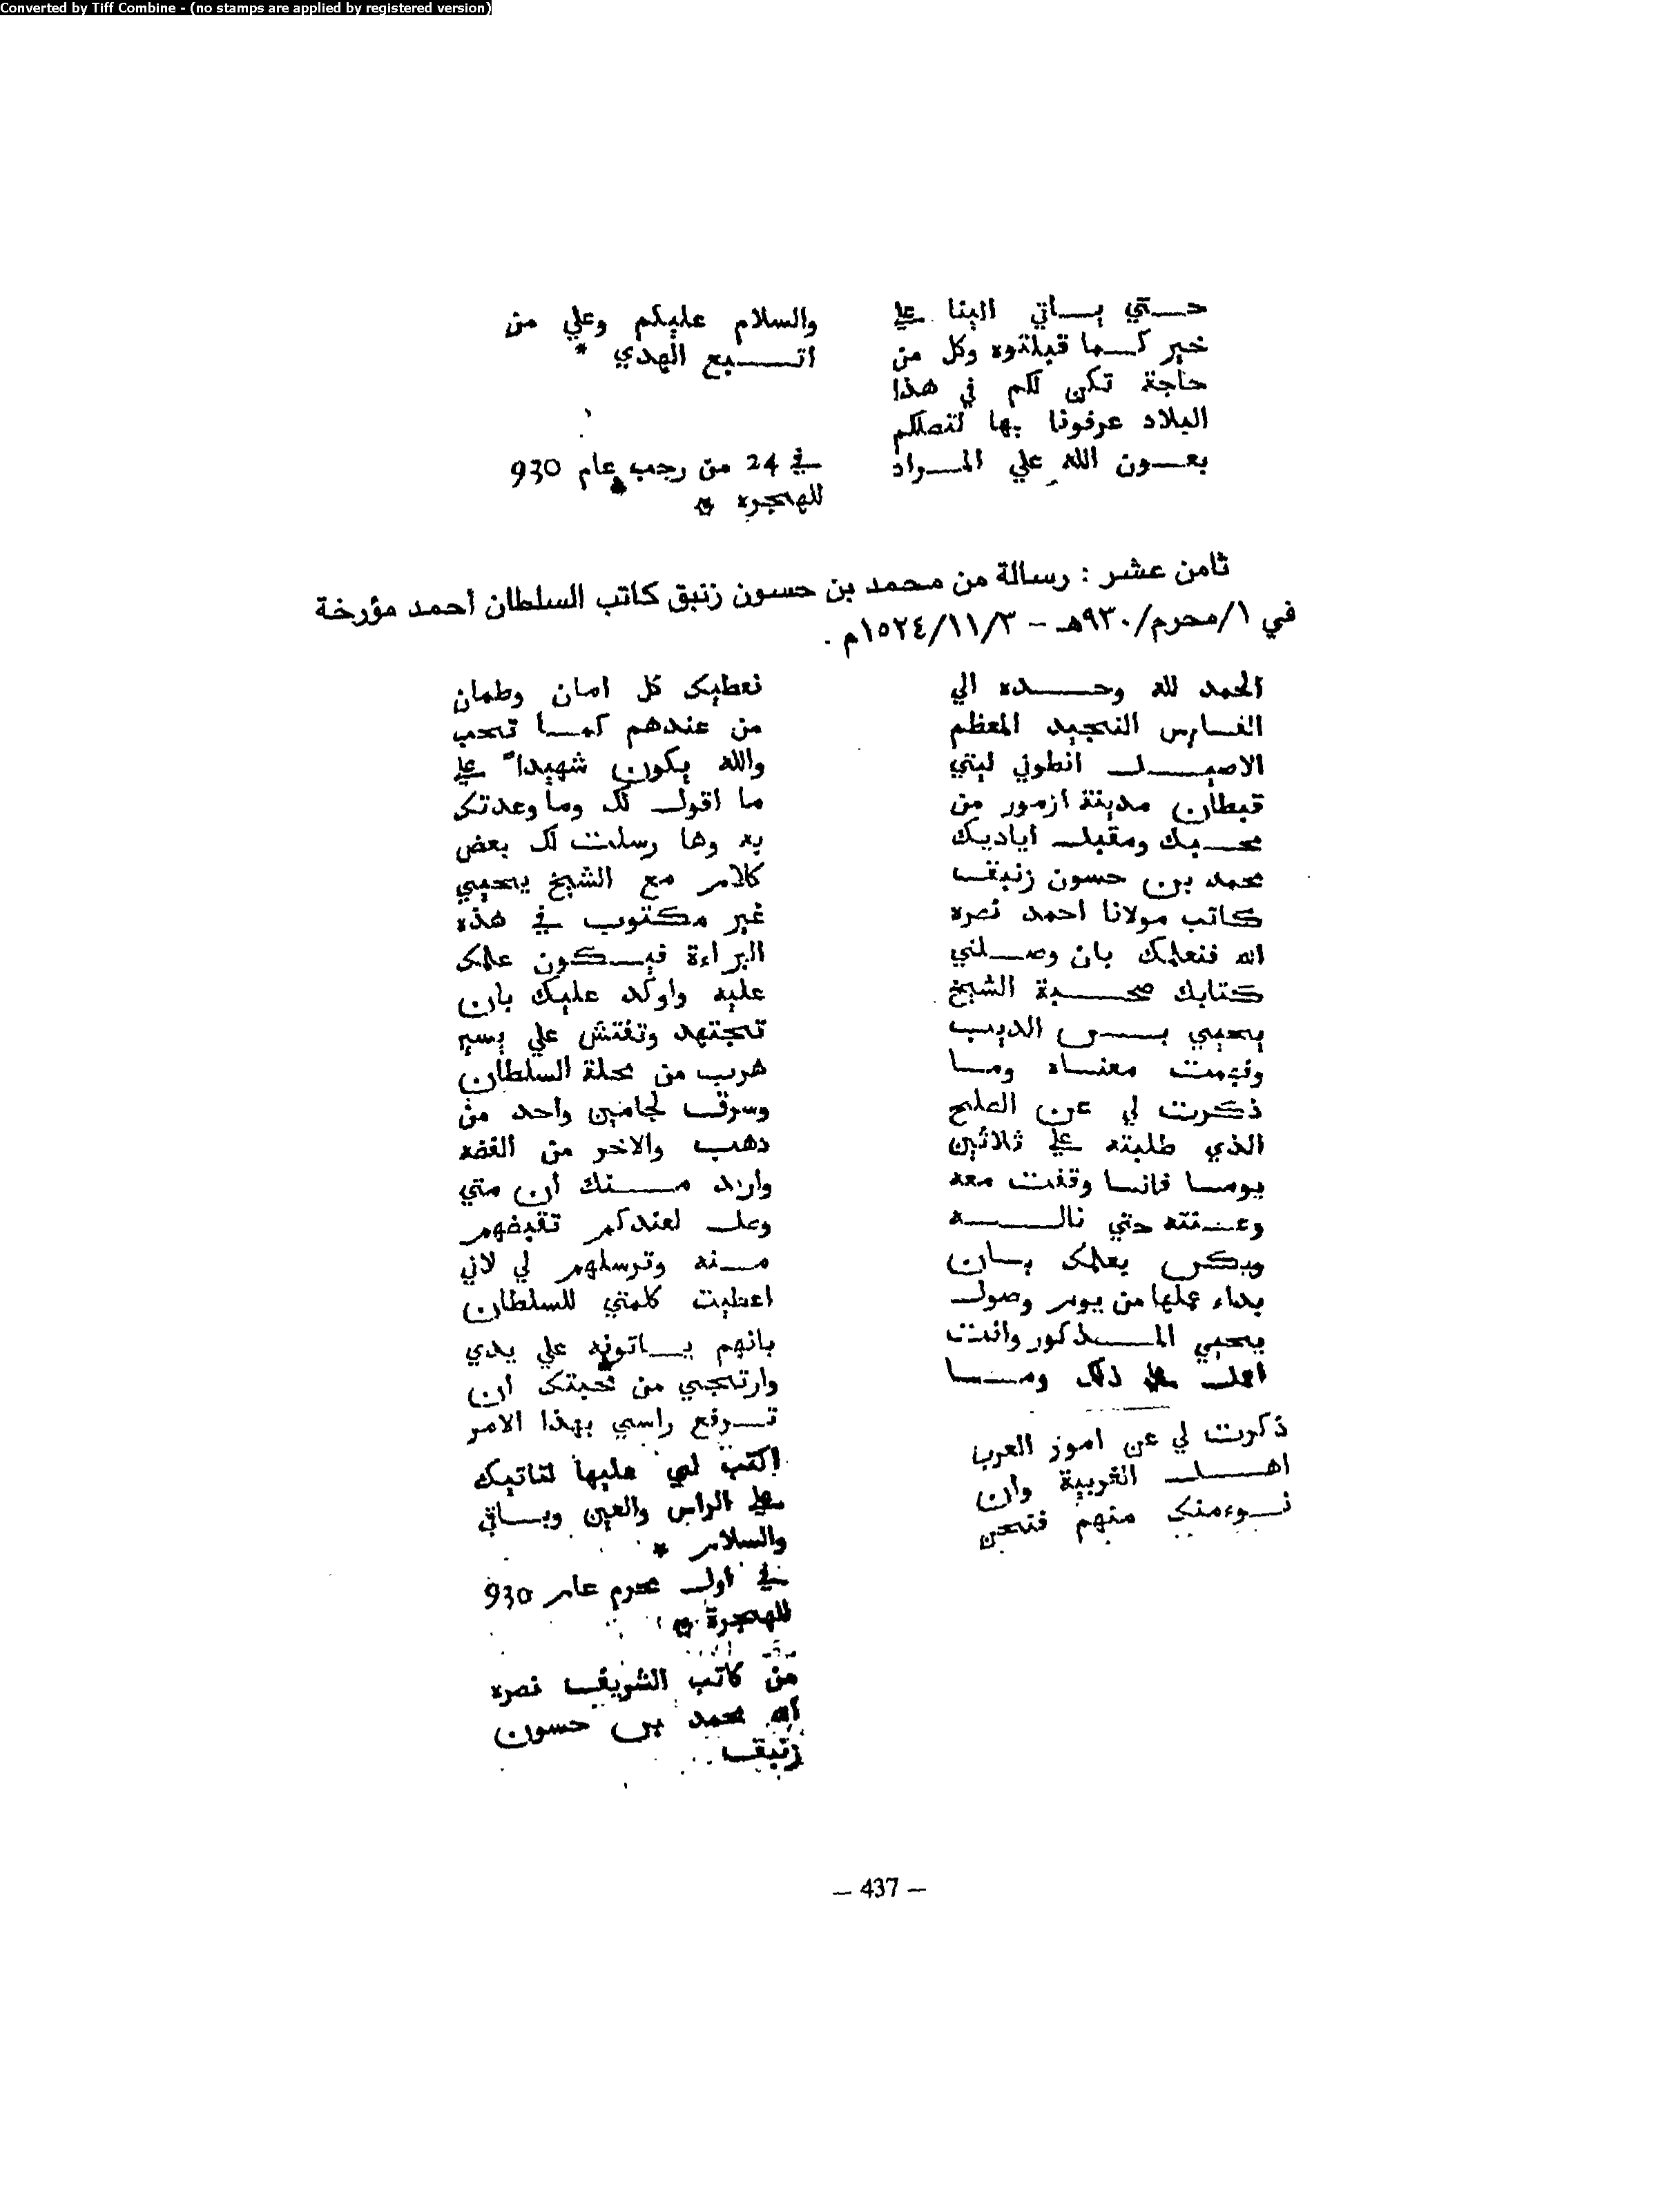 Converted by Tiff Combine - (no stamps are applied by registered version)
حـتي يـاتي الينا علي
خير كـما قبلتوه وكل من
حاجة تكن لكم في هذا
البلاد عرفونا بها لتصلكم
بعـون الله علي المـراد
والسلام عليكم وعلي من
اتـبع الهدي *
في 24 من رجب عام 930
للهجره *
ثامن عشر : رسالة من محمد بن حسون زنبق كاتب السلطان أحمد مؤرخة
في ١/محرم/٩٣٠هـ – ١٥٢٤/١١/٣م .
الحمد لله وحـده الي
الفـارس النجيد المعظم
الاصيـل انطوني ليتي
قبطان مدينة ازمور من
محـبك ومقبل اياديك
محمد بن حسون زنبق
كاتب مولانا احمد نصره
الله فنعلمك بان وصـلني
كتابك صحـبة الشيخ
يحيي بـن الديب
وفهمت معنـاه ومـا
ذكرت لي عن العلج
الذي طلبته علي ثلاثين
يومـا فانـا وقفت معه
وعـنته حتي نالـه
ويكن يعلمك بـان
بداء عملها من يوم وصول
يحيي المـذكور وانت
اعمل علي ذلك ومـا
ذكرت لي عن امور العرب
اهـل الغربية وان
نـوءمنك منهم فنحن
نعطيك كل امان وطمان
من عندهم كمـا تحب
والله يكون شهيداً علي
ما اقول لك وما وعدتك
به وها رسلت لك بعض
كلام مع الشيخ يحيي
غير مكتوب في هذه
البراءة فيـكون علمك
عليه واوكد عليك بان
تجتهد وتفتش علي يسير
هرب من محلة السلطان
وسرق لجامين واحد من
دهب والاخر من الفضه
واريد مـنك ان متي
وصل لعندكم تقبضهم
مـنه وترسلهم لي لاني
اعطيت كلمتي للسلطان
بانهم يـاتونه علي يدي
وارتجي من محبتك ان
تـرفع راسي بهذا الامر
اكتب لي عليها لتاتيك
علي الراس والعين ويـاتي
والسلام *
في اول محرم عام 930
للهجرة
من كاتب الشريف نصره
الله محمد بن حسون
زنبق
— 437 —